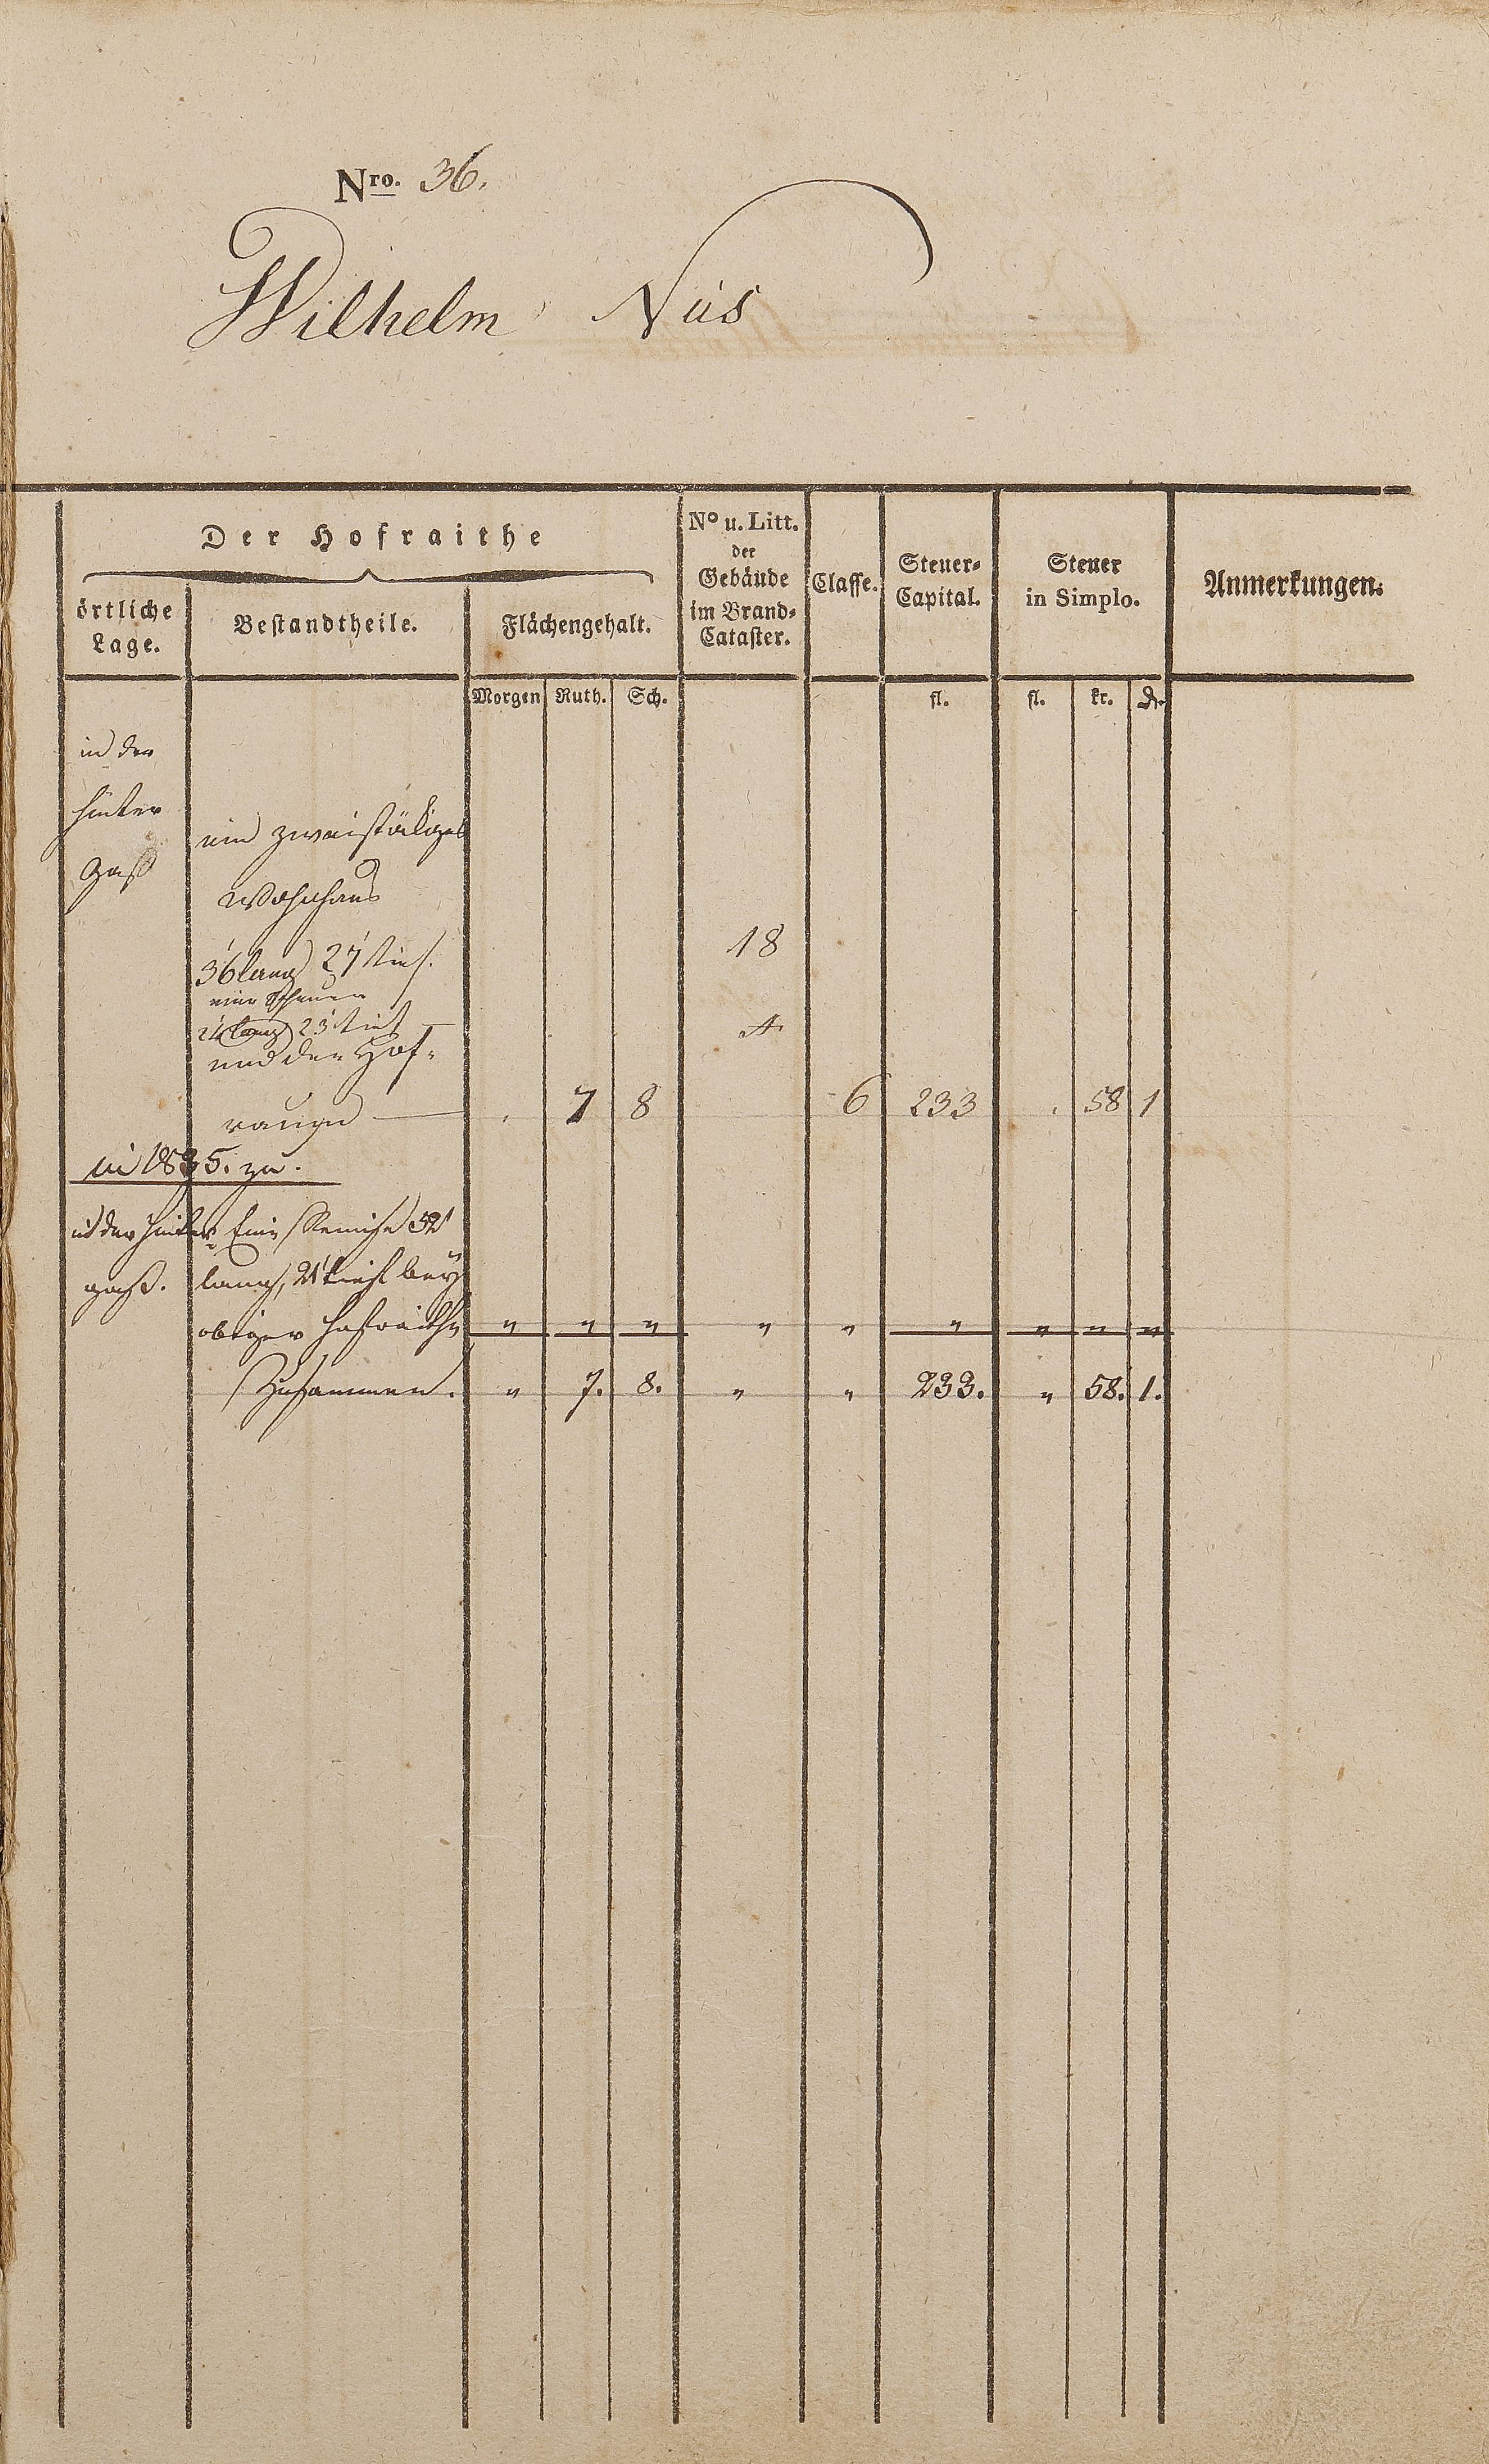 Nro. 36.
Wilhelm Nüs
Der Hofraithe
örtliche Lage.
Bestandtheile.
Flächengehalt.
No u. Litt. der Gebäude im Brand-Cataster.
Classe.
Steuer-Capital.
Steuer in Simplo.
Anmerkungen.
Morgen Ruth. Sch. fl. fl. kr. d.
in der
hinter
gaß
ein zweistökiges
Wohnhaus
36' lang 27' tief. 18
eine Scheuer
24' lang 23' tief — A
und der Hof-
raum — . 7 8 6 233 . 58 1
in 1835. zu.
in der hinter- Eine Remise 52'
gaß. lang, 21' tief bey
obiger Hofraithe " " " " " " " " "
Zusammen. " 7. 8. " " 233. " 58. 1.